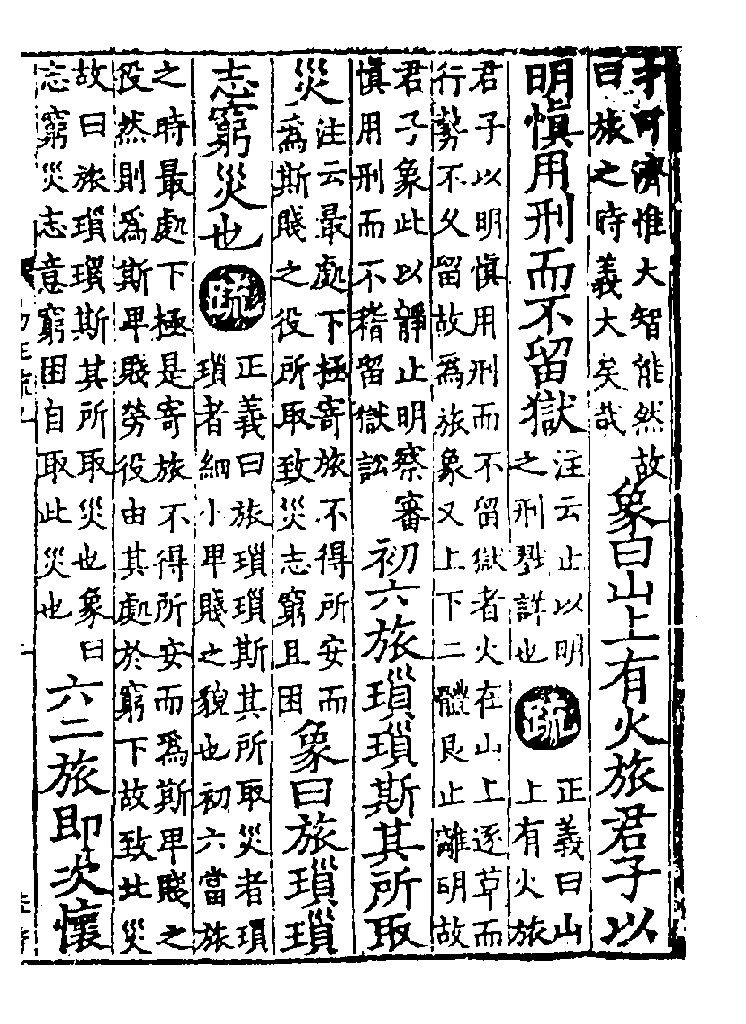 才可濟惟大智能然故
曰旅之時義大矣哉
象曰山上有火旅君子以
明慎用刑而不留獄
注云止以明
之刑戮詳也
疏
正義曰山
上有火旅
君子以明慎用刑而不留獄者火在山上逐草而
行勢不久留故爲旅象又上下二體艮止離明故
君子象此以靜止明察審
慎用刑而不稽留獄訟
初六旅瑣瑣斯其所取
災
注云最處下極寄旅不得所安而
爲斯賤之役所取致災志窮且困
象曰旅瑣瑣
志窮災也
疏
正義曰旅瑣瑣斯其所取災者瑣
瑣者細小卑賤之貌也初六當旅
之時最處下極是寄旅不得所安而爲斯卑賤之
役然則爲斯卑賤勞役由其處於窮下故致此災
故曰旅瑣瑣斯其所取災也象曰
志窮災志意窮困自取此災也
六二旅即次懷